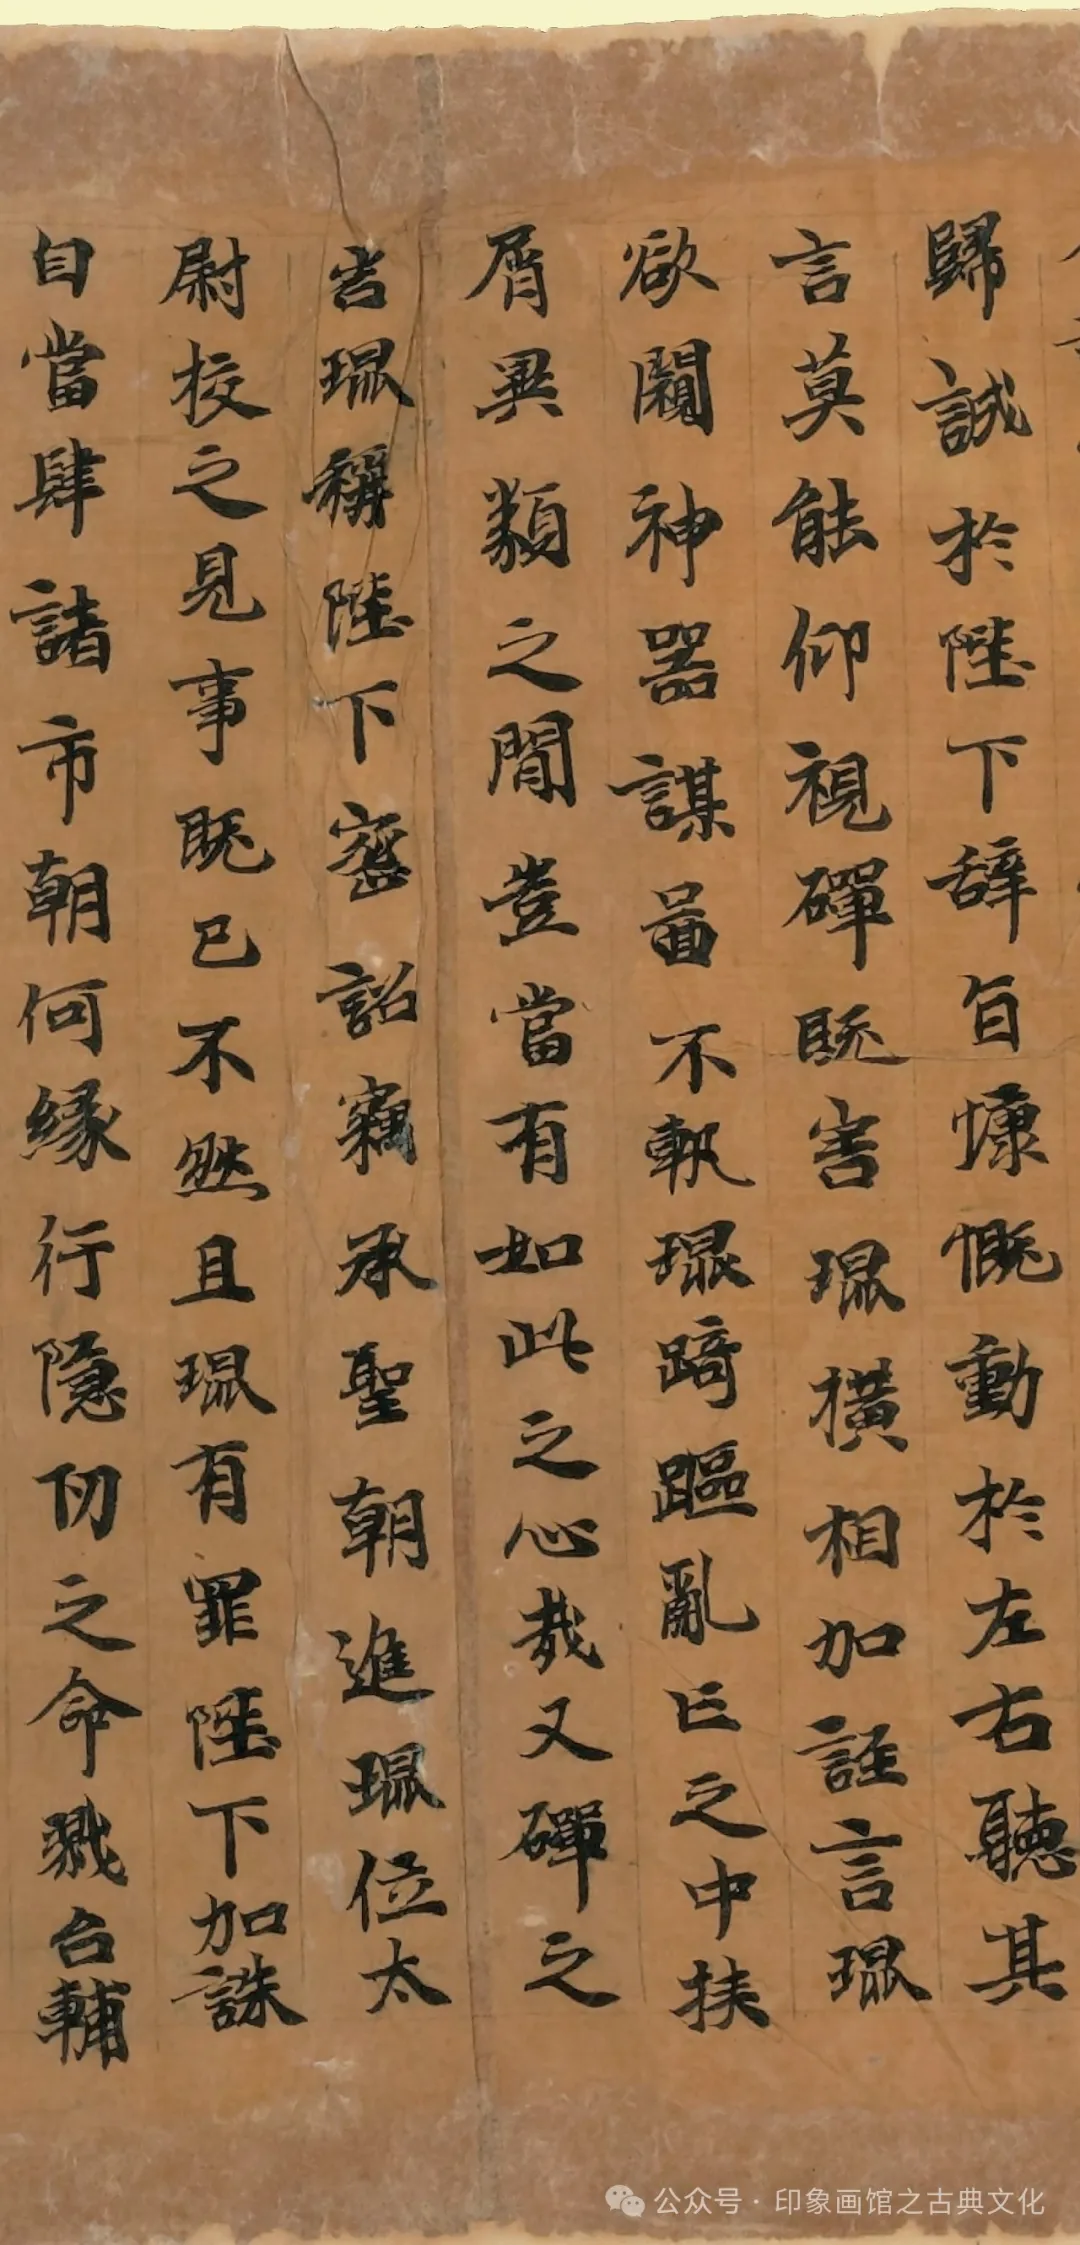 歸誠於陛下辞旨慷慨動於左右聽其
言莫能仰視磾既害琨橫相加誣言琨
欲闚神器謀啚不軌琨踦䟽亂亡之中挟
屑異類之間豈當有如此之心哉又磾之
害琨稱陛下密詔竊承聖朝進琨位太
尉校之見事既已不然且琨有罪陛下加誅
自當肆諸市朝何緣行隱切之命戮台輔
公众号·印象画馆之古典文化